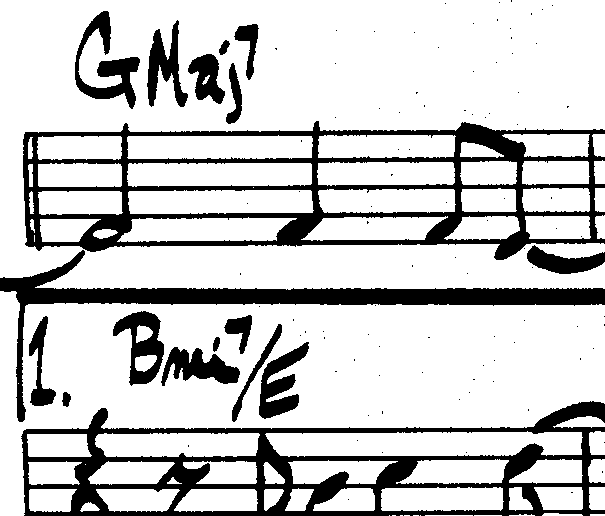 GMaj7
1. Bmi7/E